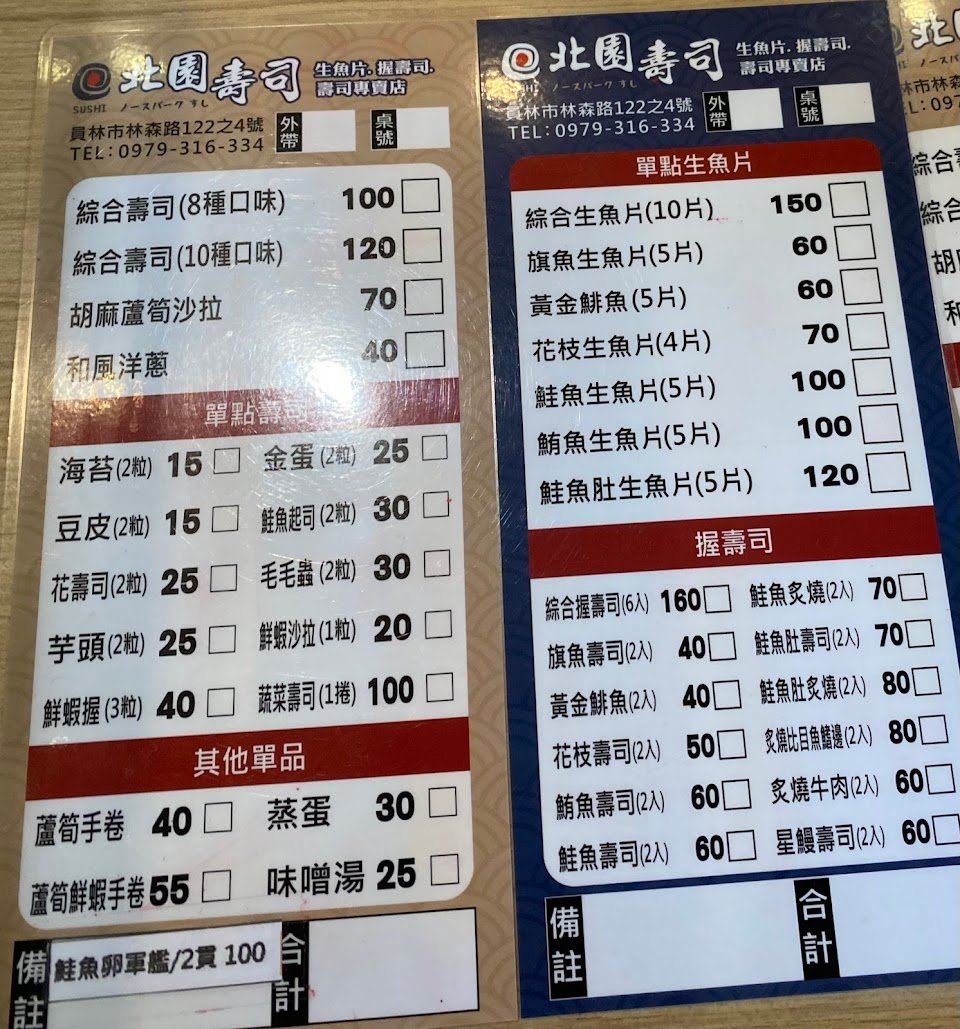 北園壽司 生魚片.握壽司.
壽司專賣店
SUSHI ノースパーク すし
員林市林森路122之4號
TEL:0979-316-334
外帶 桌號
綜合壽司(8種口味) 100
綜合壽司(10種口味) 120
胡麻蘆筍沙拉 70
和風洋蔥 40
單點壽司
海苔(2粒) 15 金蛋(2粒) 25
豆皮(2粒) 15 鮭魚起司(2粒) 30
花壽司(2粒) 25 毛毛蟲(2粒) 30
芋頭(2粒) 25 鮮蝦沙拉(1粒) 20
鮮蝦握(3粒) 40 蔬菜壽司(1捲) 100
其他單品
蘆筍手卷 40 蒸蛋 30
蘆筍鮮蝦手卷 55 味噌湯 25
備註 鮭魚卵軍艦/2貫 100 合計
北園壽司 生魚片.握壽司.
壽司專賣店
SUSHI ノースパーク すし
員林市林森路122之4號
TEL:0979-316-334
外帶 桌號
單點生魚片
綜合生魚片(10片) 150
旗魚生魚片(5片) 60
黃金鯡魚(5片) 60
花枝生魚片(4片) 70
鮭魚生魚片(5片) 100
鮪魚生魚片(5片) 100
鮭魚肚生魚片(5片) 120
握壽司
綜合握壽司(6入) 160 鮭魚炙燒(2入) 70
旗魚壽司(2入) 40 鮭魚肚壽司(2入) 70
黃金鯡魚(2入) 40 鮭魚肚炙燒(2入) 80
花枝壽司(2入) 50 炙燒比目魚鰭邊(2入) 80
鮪魚壽司(2入) 60 炙燒牛肉(2入) 60
鮭魚壽司(2入) 60 星鰻壽司(2入) 60
備註 合計